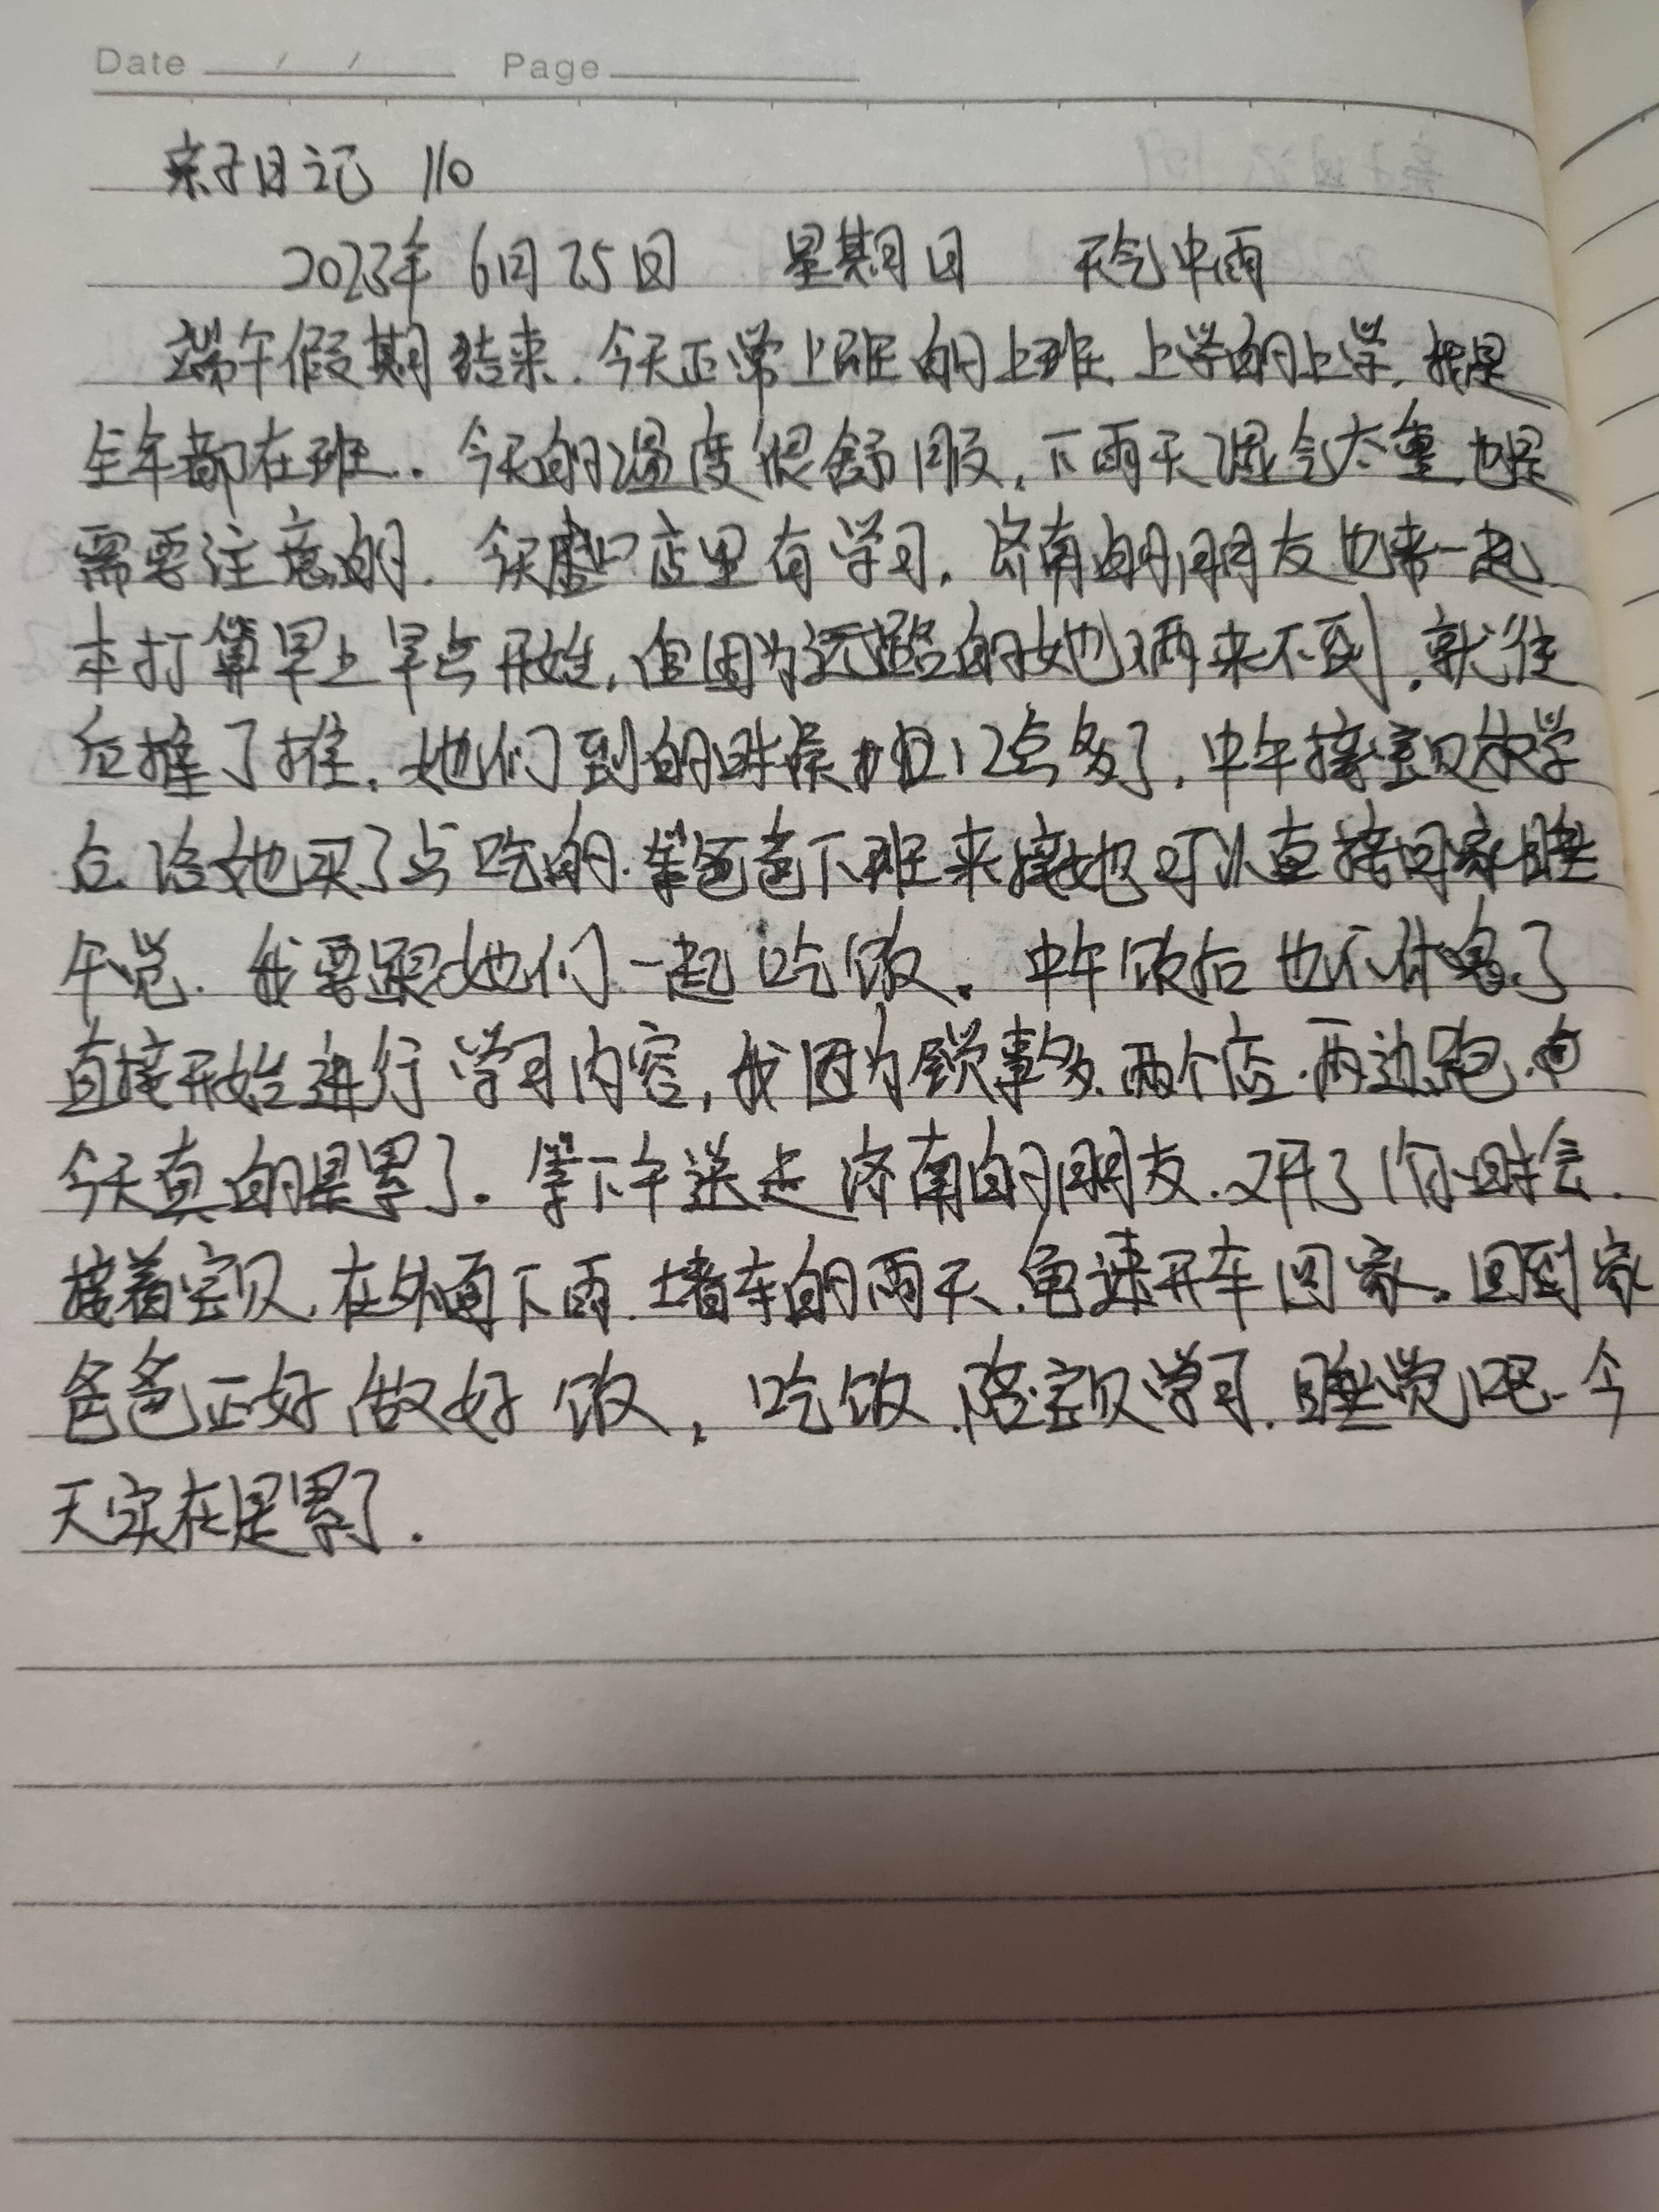 Date / / Page
亲子日记 110
2023年6月25日 星期日 天气中雨
端午假期结束.今天正常上班的上班.上学的上学.我是
全年都在班.今天的温度很舒服,下雨天湿气太重.也是
需要注意的.今天店里有学习.济南的朋友也来一起.
本打算早上早点开始,但因为远路的她们来不到.就往
后推了推.她们到的时候也12点多了.中午接宝贝放学
后.给她买了点吃的.等爸爸下班来接她可以直接回家睡
午觉.我要跟她们一起吃饭.中午饭后也不休息了
直接开始进行学习内容,我因为锁事多.两个店.两边跑.
今天真的是累了.等下午送走济南的朋友.又开了个小时会.
接着宝贝.在外面下雨.堵车的雨天.龟速开车回家.回到家
爸爸正好做好饭,吃饭.陪宝贝学习.睡觉吧.今
天实在是累了.